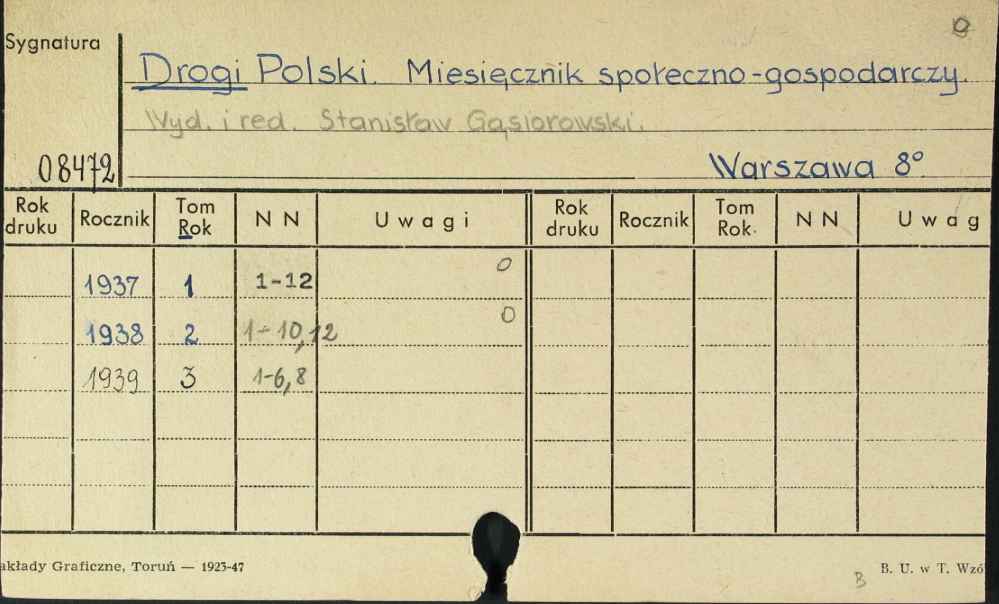 Sygnatura
Drogi Polski. Miesięcznik społeczno-gospodarczy.
Wyd. i red. Stanisław Gąsiorowski.
08472
Warszawa 8°
Rok druku Rocznik Tom Rok N N Uwagi Rok druku Rocznik Tom Rok N N Uwag
1937 1 1-12 0
1938 2 1-10,12 0
1939 3 1-6,8
akłady Graficzne, Toruń — 1923-47
B
B. U. w T. Wzó